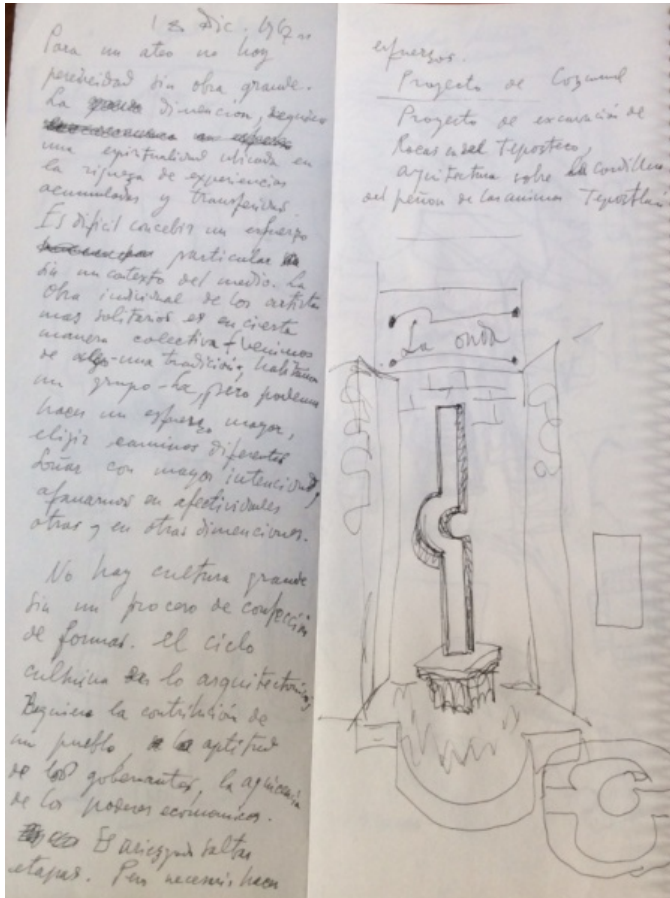 1 Dic. 1967
Para un ateo no hay
sin obra grande.
La dimención, requiere
una espiritualidad ubicada en
la riqueza de experiencias
acumuladas y
Es dificil concebir un esfuerzo
particular
sin un contexto del medio. La
obra de los artistas
mas solitarios es en cierta
manera colectiva + venimos
de una tradición, habitamos
un grupo - pero podemos
hacer un esfuerzo mayor,
elijir caminos diferentes
soñar con mayor
afanarnos en afectividades
otras y en otras dimenciones.
No hay cultura grande
sin un proceso de confección
de formas. el ciclo
culmina lo
Requiere la contribución de
un pueblo, la aptitud
de los gobernantes, la
de los poderes economicos.
Es saltar
etapas. Pero hacer
esfuerzos.
Proyecto de Cozumel
Proyecto de excavación de
Rocas en el Teposteco,
arquitectura sobre la cordillera
del peñon de las animas
La onda